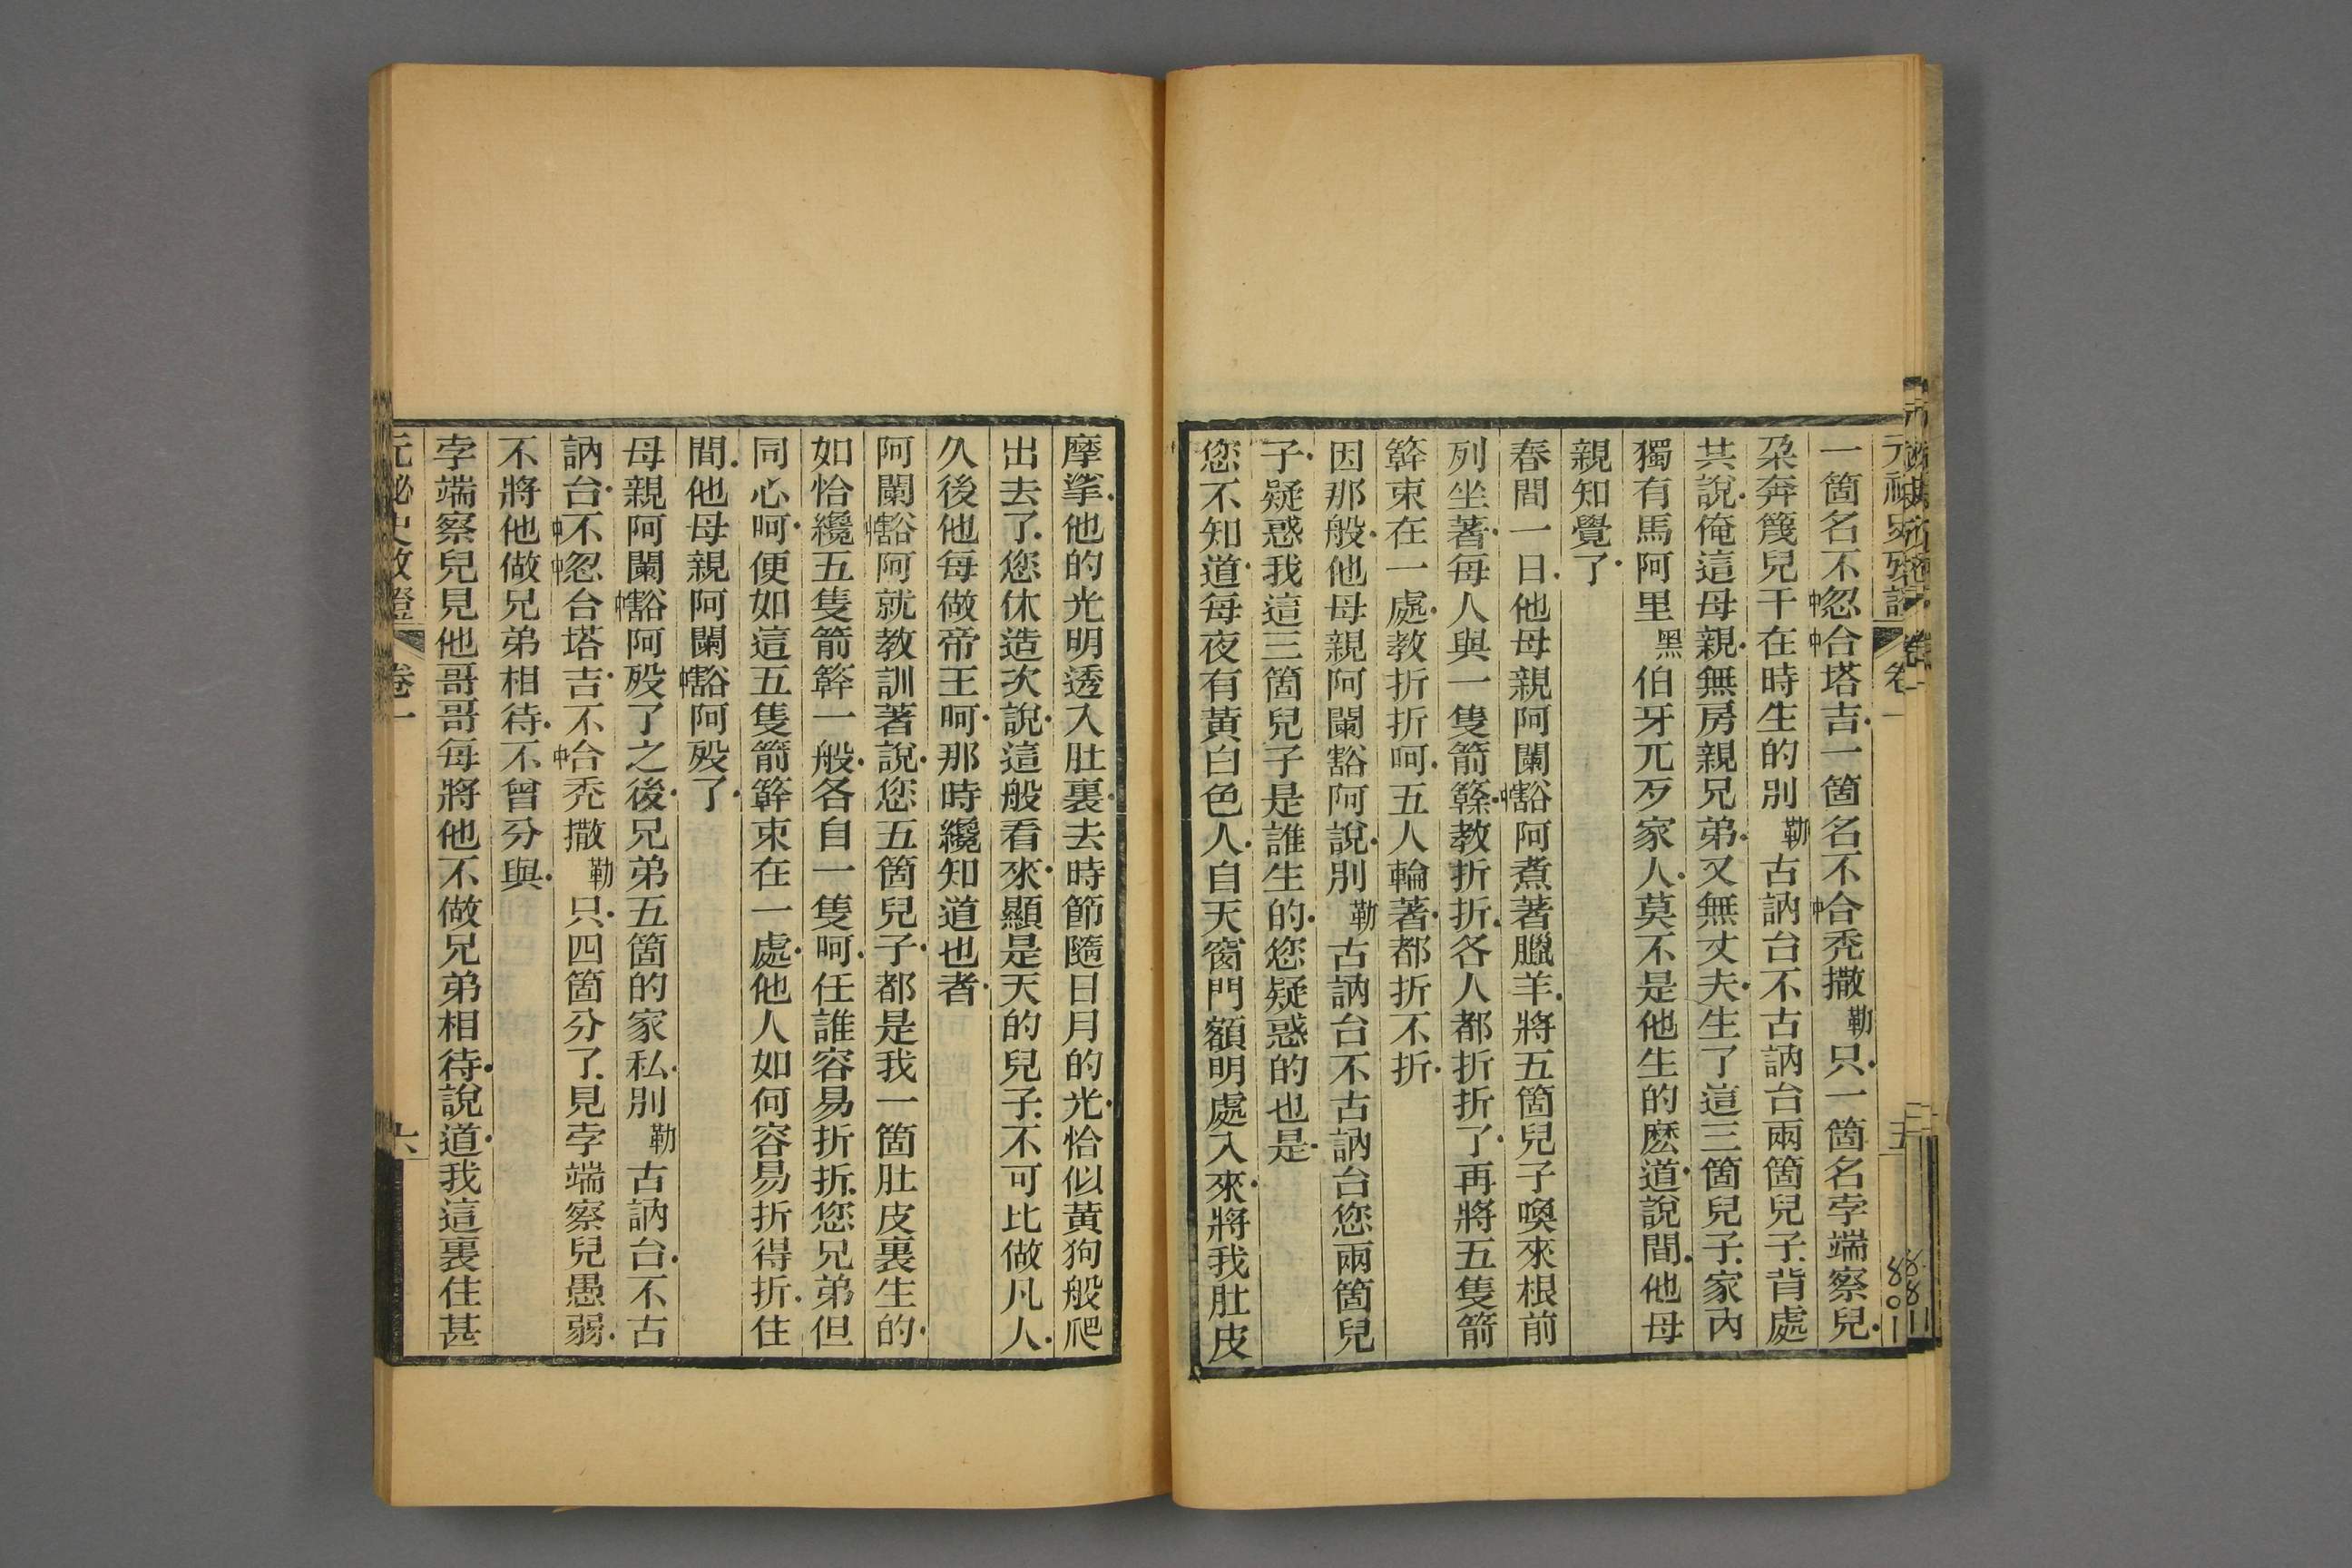 一箇名不中忽中合塔吉一箇名不中合禿撒勒只一箇名孛端察兒
朶奔篾兒干在時生的別勒古訥台不古訥台兩箇兒子背處
共說俺這母親無房親兄弟又無丈夫生了這三箇兒子家內
獨有馬阿里黑伯牙兀歹家人莫不是他生的麽道說間他母
親知覺了
春間一日他母親阿闌中豁阿煮著臘羊將五箇兒子喚來根前
列坐著每人與一隻箭簳教折折各人都折折了再將五隻箭
簳束在一處教折折呵五人輪著都折不折
因那般他母親阿闌豁阿說別勒古訥台不古訥台您兩箇兒
子疑惑我這三箇兒子是誰生的您疑惑的也是
您不知道每夜有黃白色人自天窗門額明處入來將我肚皮
摩挲他的光明透入肚裏去時節隨日月的光恰似黃狗般爬
出去了您休造次說這般看來顯是天的兒子不可比做凡人
久後他每做帝王呵那時纔知道也者
阿闌中豁阿就教訓著說您五箇兒子都是我一箇肚皮裏生的
如恰纔五隻箭簳一般各自一隻呵任誰容易折折您兄弟但
同心呵便如這五隻箭簳束在一處他人如何容易折得折住
間他母親阿闌中豁阿歿了
母親阿闌中豁阿歿了之後兄弟五箇的家私別勒古訥台不古
訥台不中忽中合塔吉不中合禿撒勒只四箇分了見孛端察兒愚弱
不將他做兄弟相待不曾分與
孛端察兒見他哥哥每將他不做兄弟相待說道我這裏住甚
卷一
六